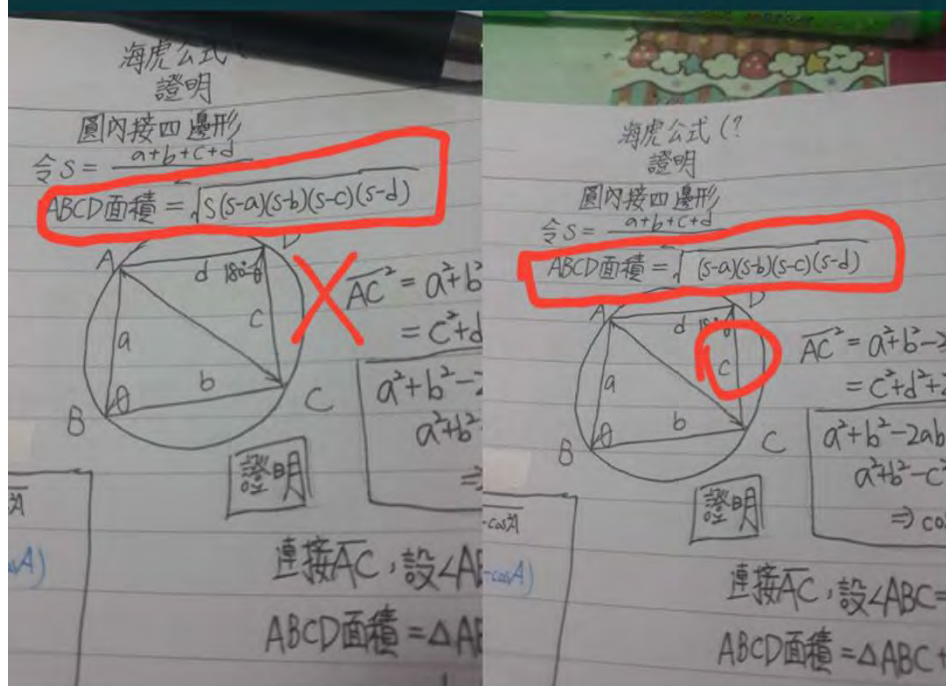 海虎公式
證明
圓內接四邊形
令S = a+b+c+d
ABCD面積 = √S(s-a)(s-b)(s-c)(s-d)
A
D
d
180°-θ
a
c
b
B
θ
C
AC² = a²+b²
= c²+d
a²+b²-
a²+b²-
證明
連接AC,設∠AB
ABCD面積 = △AB
海虎公式 (?
證明
圓內接四邊形
令S = a+b+c+d
ABCD面積 = √(s-a)(s-b)(s-c)(s-d)
A
D
d
a
c
b
B
θ
C
AC² = a²+b²-2
= c²+d²+2
a²+b²-2ab
a²+b²-c²
⇒ co
證明
-cos²A
-cosA)
連接AC,設∠ABC=
ABCD面積 = △ABC+